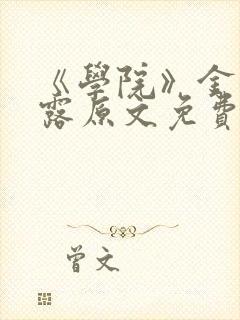 《學院》金
露原文免費
曾文